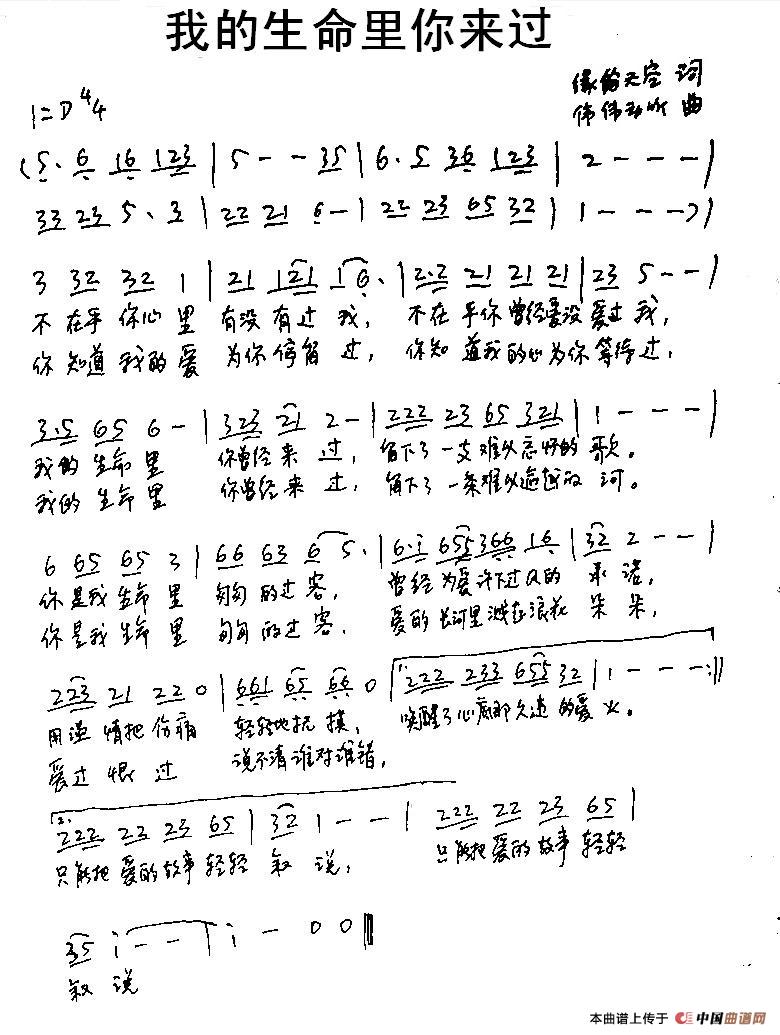 我的生命里你来过
缘的天空 词
伟伟动听 曲
1=D 4/4
(5· 6 16 123 | 5 - - 35 | 6· 5 36 123 | 2 - - - |
33 23 5· 3 | 22 21 6 - | 22 23 65 32 | 1 - - - )|
3 32 32 1 | 21 121 16· | 2·2 21 21 21 | 23 5 - - |
不在乎你心里 有没有过我, 不在乎你曾经爱没爱过我,
你知道我的爱 为你停留过, 你知道我的心为你等待过,
3·5 65 6 - | 323 21 2 - | 222 23 65 321 | 1 - - - |
我的生命里 你曾经来过, 留下了一支难以忘怀的歌。
我的生命里 你曾经来过, 留下了一条难以逾越的河。
6 65 65 3 | 66 63 6 5· | 6·i 655 366 16 | 32 2 - - |
你是我生命里 匆匆的过客, 曾经为爱许下过的承诺,
你是我生命里 匆匆的过客, 爱的长河里溅起浪花朵朵,
223 21 22 0 | 661 65 66 0 | 1. 222 233 655 32 | 1 - - - :||
用温情把伤痛 轻轻地抚摸, 唤醒了心底那久违的爱火。
爱过恨过 说不清谁对谁错,
2. 222 23 23 65 | 32 1 - - | 222 22 23 65 |
只能把爱的故事轻轻叙说, 只能把爱的故事轻轻
35 i - - | i - 0 0 ||
叙说
本曲谱上传于 中国曲谱网